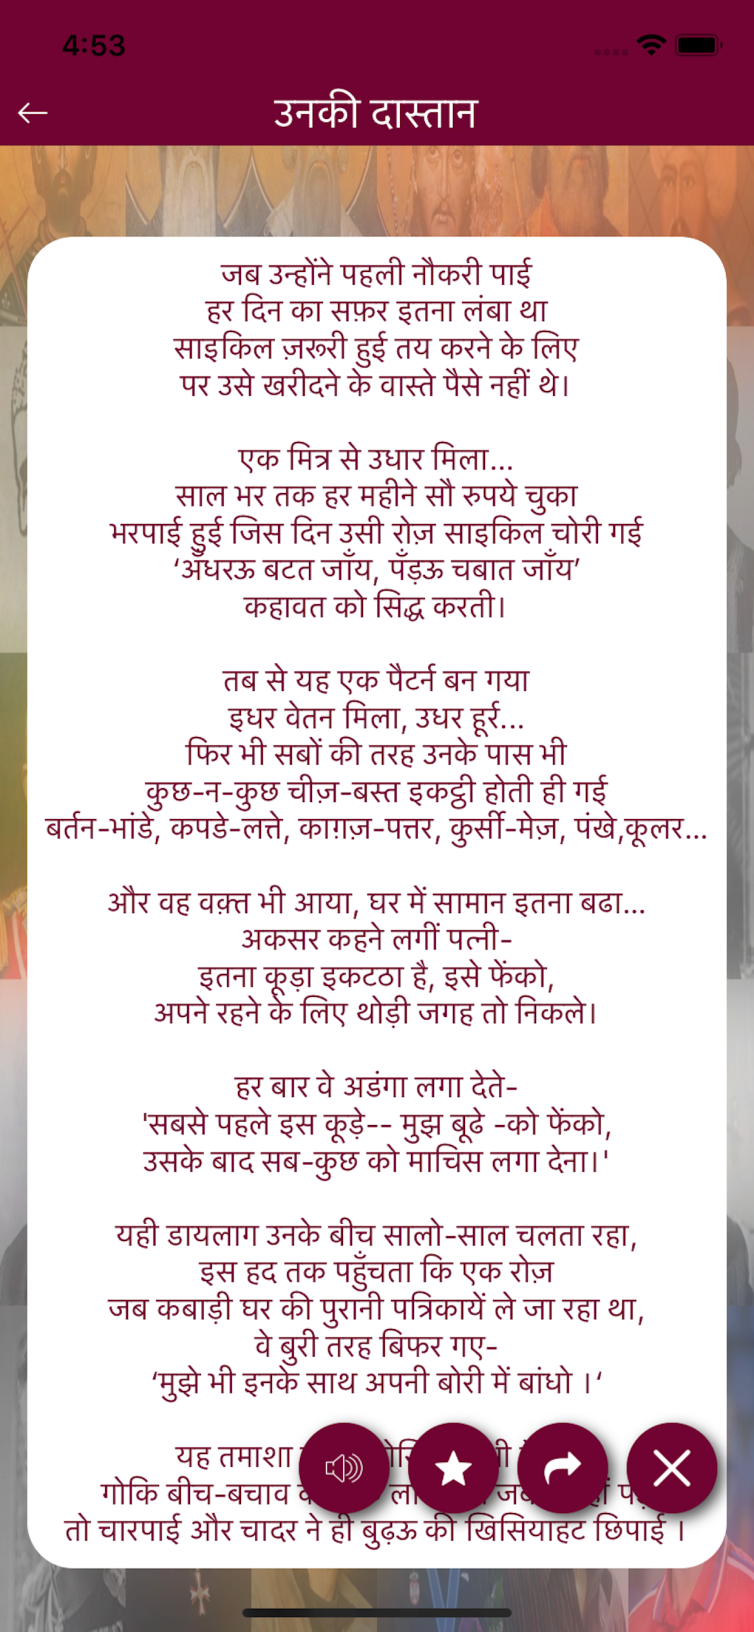 4:53
उनकी दास्तान
जब उन्होंने पहली नौकरी पाई
हर दिन का सफ़र इतना लंबा था
साइकिल ज़रूरी हुई तय करने के लिए
पर उसे खरीदने के वास्ते पैसे नहीं थे।
एक मित्र से उधार मिला...
साल भर तक हर महीने सौ रुपये चुका
भरपाई हुई जिस दिन उसी रोज़ साइकिल चोरी गई
‘अँधरऊ बटत जाँय, पँड़ऊ चबात जाँय’
कहावत को सिद्ध करती।
तब से यह एक पैटर्न बन गया
इधर वेतन मिला, उधर हूर्र...
फिर भी सबों की तरह उनके पास भी
कुछ-न-कुछ चीज़-बस्त इकट्ठी होती ही गई
बर्तन-भांडे, कपडे-लत्ते, काग़ज़-पत्तर, कुर्सी-मेज़, पंखे,कूलर...
और वह वक़्त भी आया, घर में सामान इतना बढा...
अकसर कहने लगीं पत्नी-
इतना कूड़ा इकटठा है, इसे फेंको,
अपने रहने के लिए थोड़ी जगह तो निकले।
हर बार वे अडंगा लगा देते-
'सबसे पहले इस कूड़े-- मुझ बूढे -को फेंको,
उसके बाद सब-कुछ को माचिस लगा देना।'
यही डायलाग उनके बीच सालो-साल चलता रहा,
इस हद तक पहुँचता कि एक रोज़
जब कबाड़ी घर की पुरानी पत्रिकायें ले जा रहा था,
वे बुरी तरह बिफर गए-
‘मुझे भी इनके साथ अपनी बोरी में बांधो ।‘
यह तमाशा
गोकि बीच-बचाव
तो चारपाई और चादर ने ही बुढ़ऊ की खिसियाहट छिपाई ।